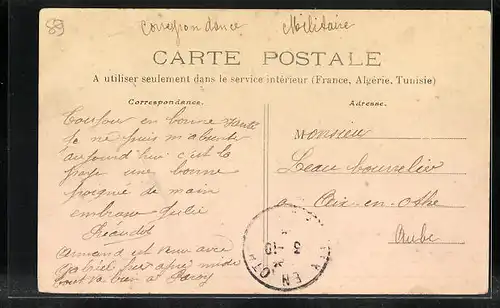 89 Correspondance Militaire
CARTE POSTALE
A utiliser seulement dans le service intérieur (France, Algérie, Tunisie)
Correspondance.
Adresse.
Toujour en bonne Santé
Je ne puis m absente
aujourd hui c'est la
une bonne
poignée de main
embrasse Julie
Armand est venu avec
Gabriel apré midi
tout va bien a
Monsieur
a Aix-en-Othe
Aube
3 -10
AIX EN OTH